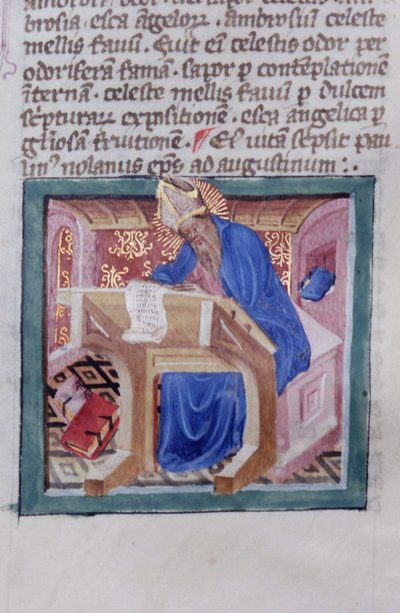 brosia, esca angeloꝝ. ambrosiū celeste
mellis fauꝰ. Fuit eī celestis odor per
odoriferā famā. sapor ꝑ contēplationē
īternā. celeste mellis fauꝰ ꝑ dulcem
sc̄pturaꝝ expositionē. esca angelica ꝑ
gl̄iosā fruitionē. Eiꝰ uitā sc̄psit pau
linꝰ nolanus ep̄s ad augustinum :.